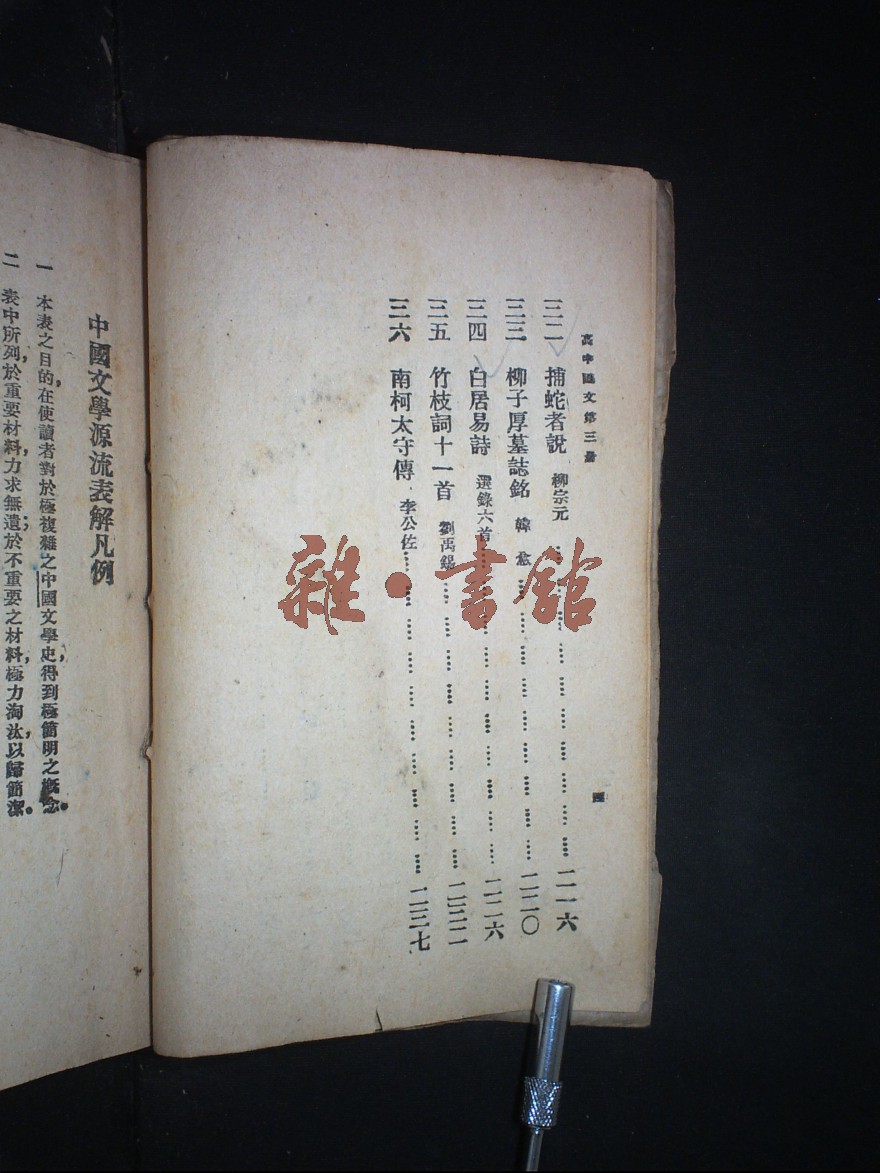 高中國文第三册 四
三二 捕蛇者說 柳宗元 …… 一一六
三三 柳子厚墓誌銘 韓愈 …… 一二〇
三四 白居易詩 選錄六首 …… 一二六
三五 竹枝詞十一首 劉禹錫 …… 一三二
三六 南柯太守傳 李公佐 …… 一三七
中國文學源流表解凡例
一 本表之目的，在使讀者對於極複雜之中國文學史，得到極簡明之概念。
二 表中所列，於重要材料，力求無遺；於不重要之材料，極力淘汰，以歸簡潔。
雜·書館